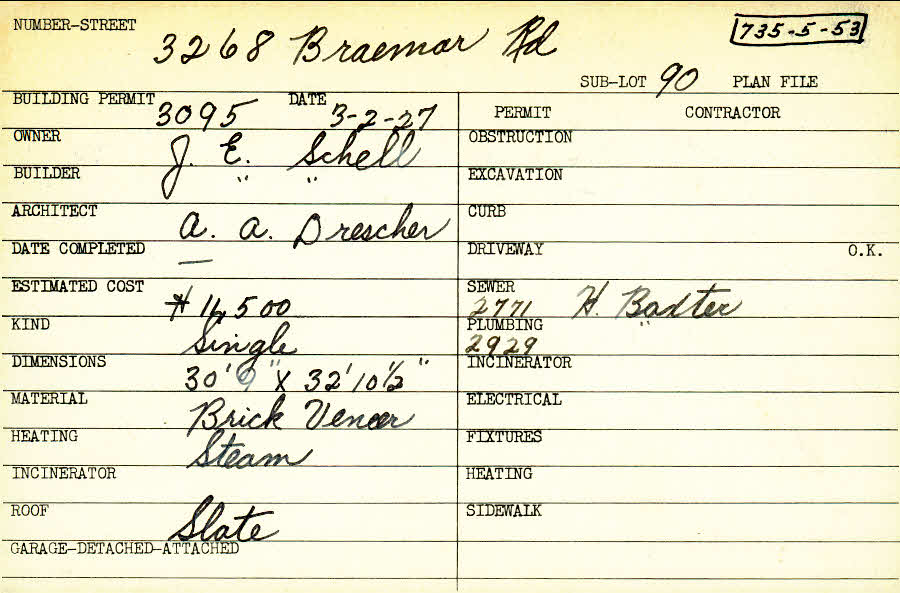 NUMBER-STREET 3268 Braemar Rd 735-5-53
SUB-LOT 90 PLAN FILE
BUILDING PERMIT 3095 DATE 3-2-27
PERMIT CONTRACTOR
OWNER J. E. Schell
OBSTRUCTION
BUILDER " "
EXCAVATION
ARCHITECT A. A. Drescher
CURB
DATE COMPLETED —
DRIVEWAY O.K.
ESTIMATED COST $ 16,500
SEWER 2771 H. Baxter
KIND Single
PLUMBING 2929 "
DIMENSIONS 30' 9" X 32' 10 1/2"
INCINERATOR
MATERIAL Brick Veneer
ELECTRICAL
HEATING Steam
FIXTURES
INCINERATOR
HEATING
ROOF Slate
SIDEWALK
GARAGE-DETACHED-ATTACHED